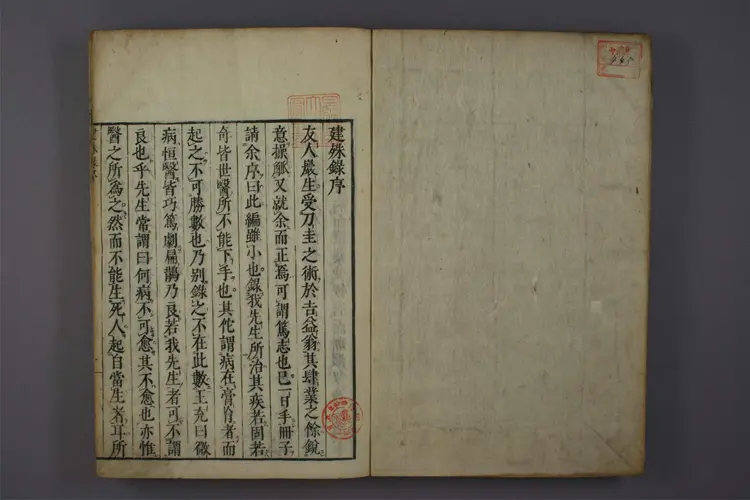 建殊錄序
友人嚴生受刀圭之術於吉益翁其肆業之餘銳
意操觚又就余而正焉可謂篤志也已一日手冊子
請余序曰此編雖小也錄我先生所治其疾若固若
奇皆世醫所不能下手也其佗謂病在膏肓者而
起之不可勝數也乃別錄之不在此數王充曰微
病恒醫皆巧篤劇扁鵲乃良若我先生者可不謂
良也乎先生常謂曰何病不可愈其不愈也亦惟
醫之所為之然而不能生死人起自當生者耳所
建殊錄序